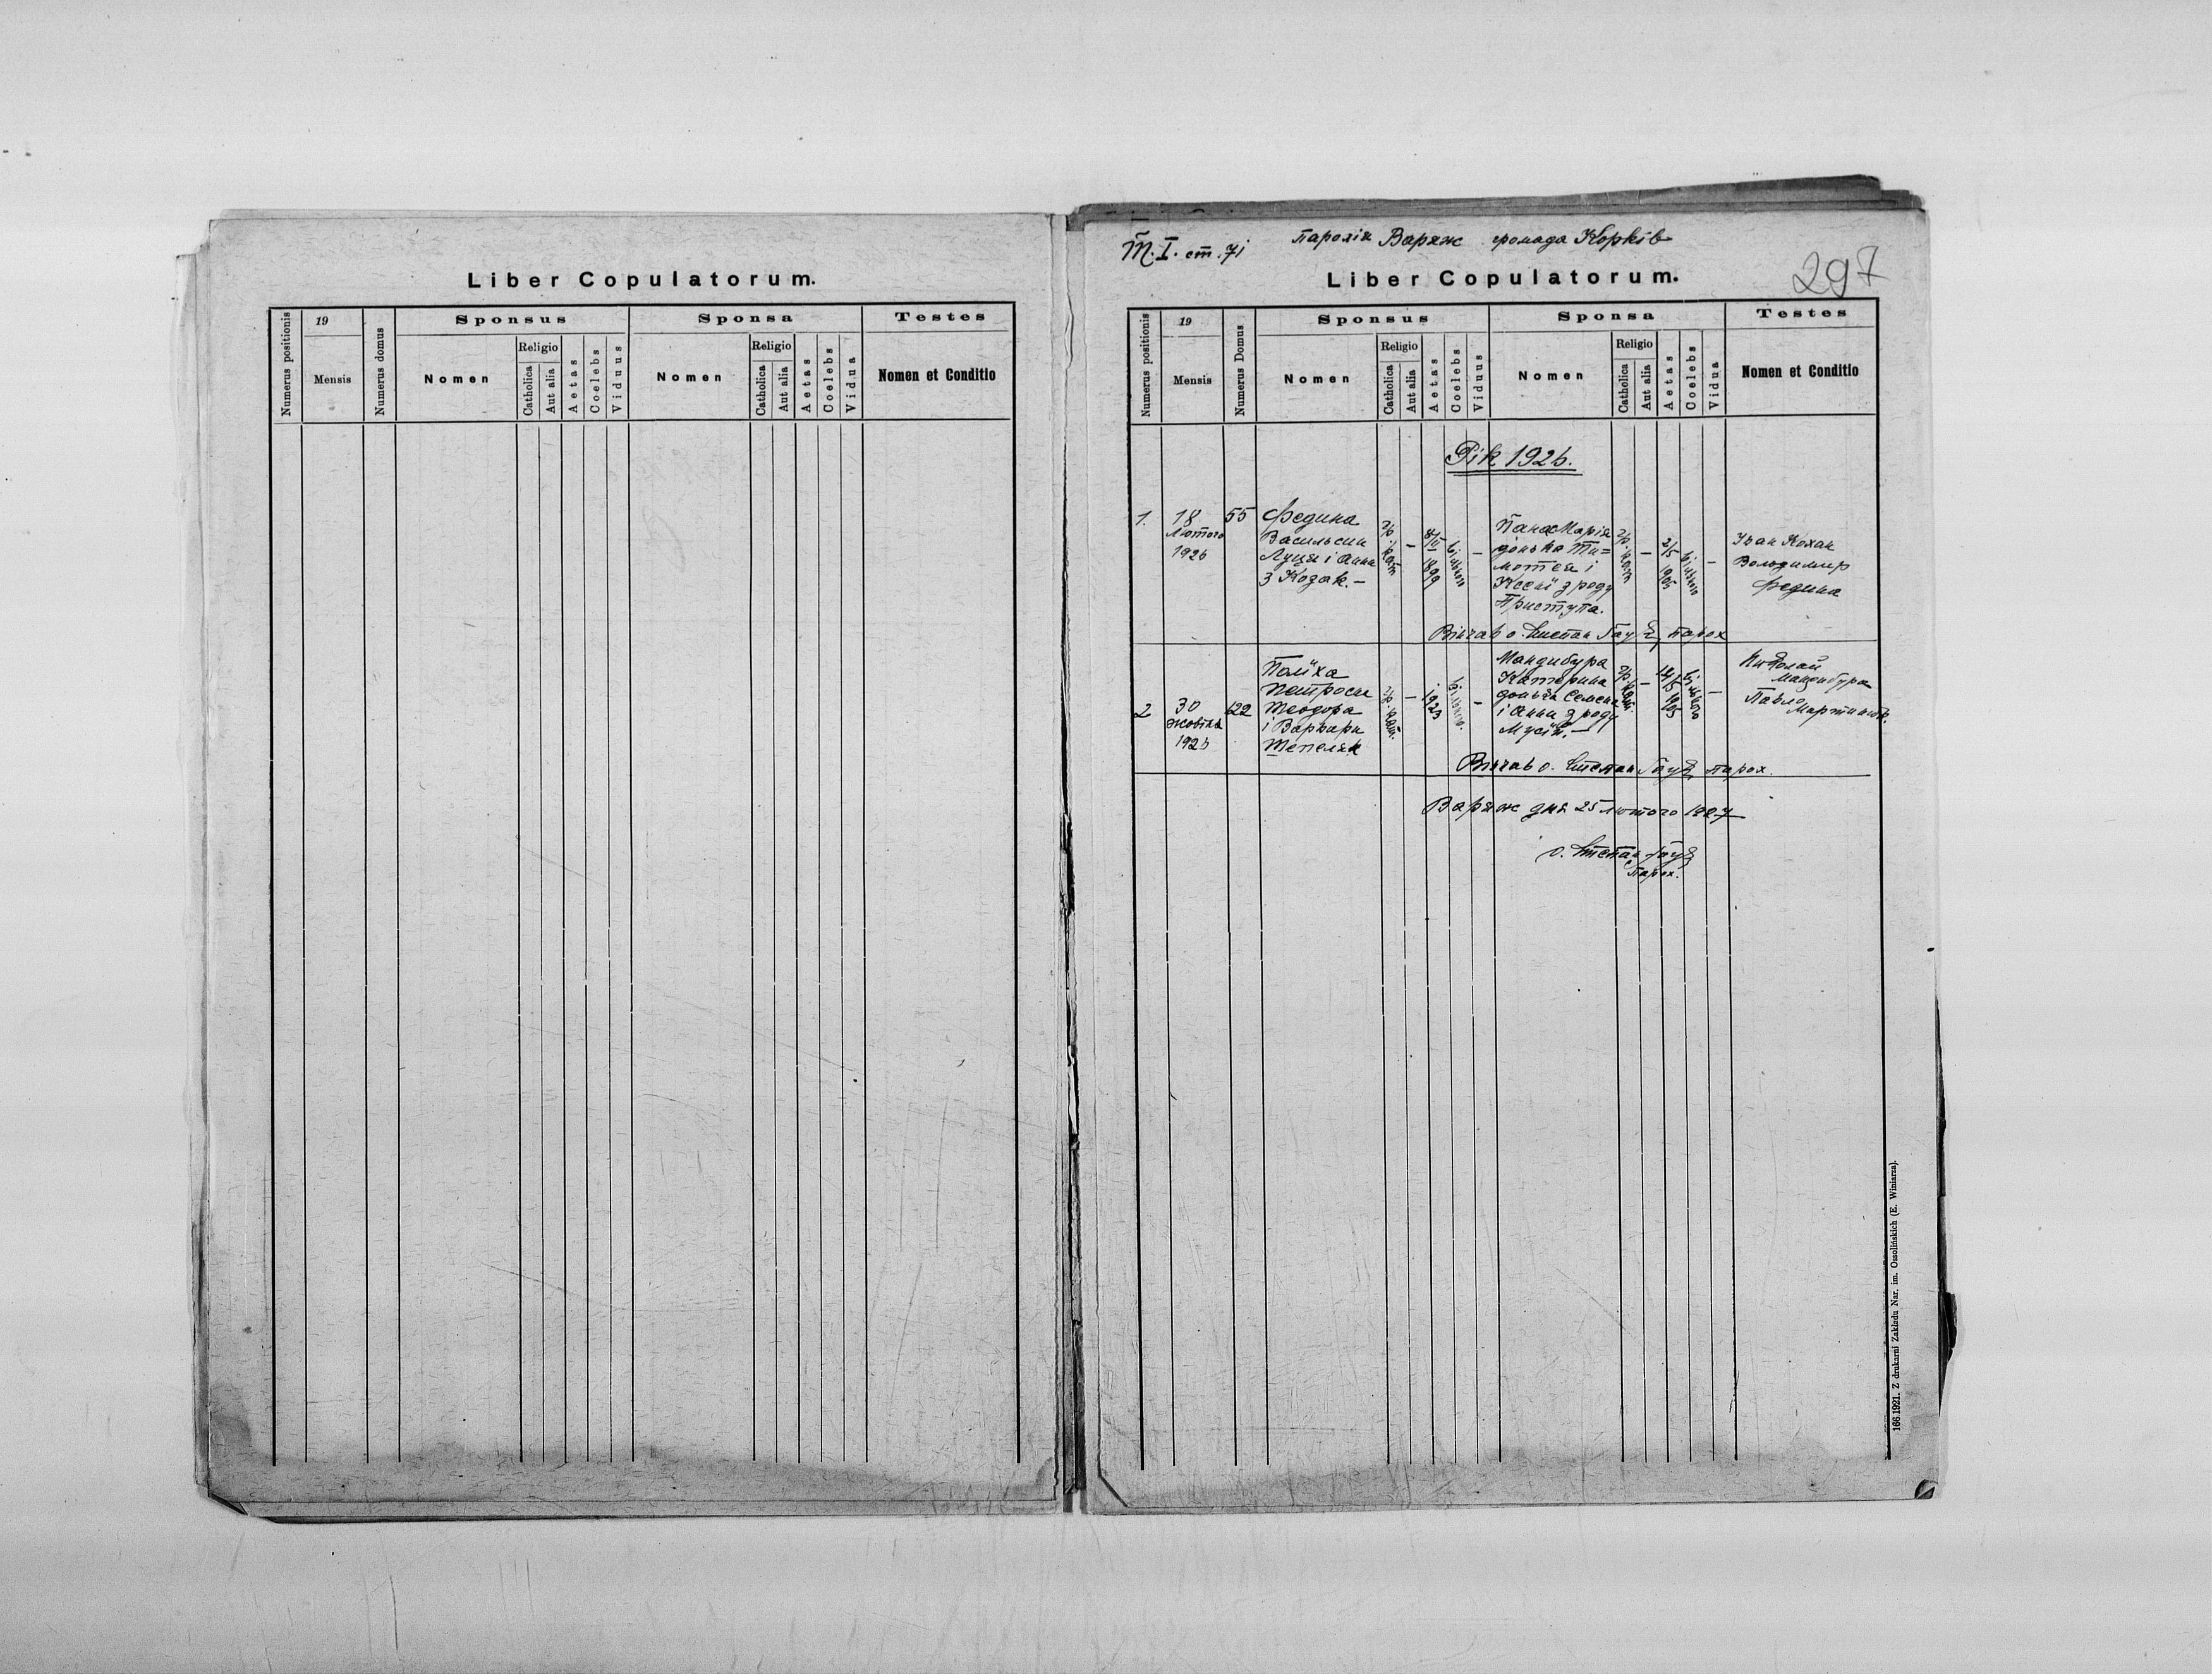 Liber Copulatorum.
Numerus positionis
19
Mensis
Numerus domus
Sponsus
Nomen
Religio
Catholica
Aut alia
Aetas
Coelebs
Viduus
Sponsa
Nomen
Religio
Catholica
Aut alia
Aetas
Coelebs
Vidua
Testes
Nomen et Conditio
Т. I. ст. 71
Парохія Варяж громада Корків
297
Liber Copulatorum.
Numerus positionis
19
Mensis
Numerus Domus
Sponsus
Nomen
Religio
Catholica
Aut alia
Aetas
Coelebs
Viduus
Sponsa
Nomen
Religio
Catholica
Aut alia
Aetas
Coelebs
Vidua
Testes
Nomen et Conditio
Рік 1926.
1.
18
Лютого
1926
55
Федина
Василь син
Луця і Анни
з Козак. —
гр. кат
—
1899
вільного
—
Марія
донька Ти=
мотея і
Ксені з роду
Приступа.
гр. кат
—
2/5 1905
вільного
—
Іван Кохан
Володимир
Федина
Вінчав о. Степан парох
2
30
жовтня
1926
622
Поліха
Петро син
Теодора
і Варвари
Шепеляк
гр. кат.
—
1923
вільного.
—
Мандибура
Катерина
донька Семена
і Анни з роду
Мусій. —
гр. кат.
—
1905
вільного
—
Николай
Мандибура
Павло
Мартинюк.
Вінчав о. Степан парох.
Варяж дня 25 лютого 1927
о. Степан
парох.
166 1921. Z drukarni Zakładu Nar. im. Ossolińskich (E. Winiarza).